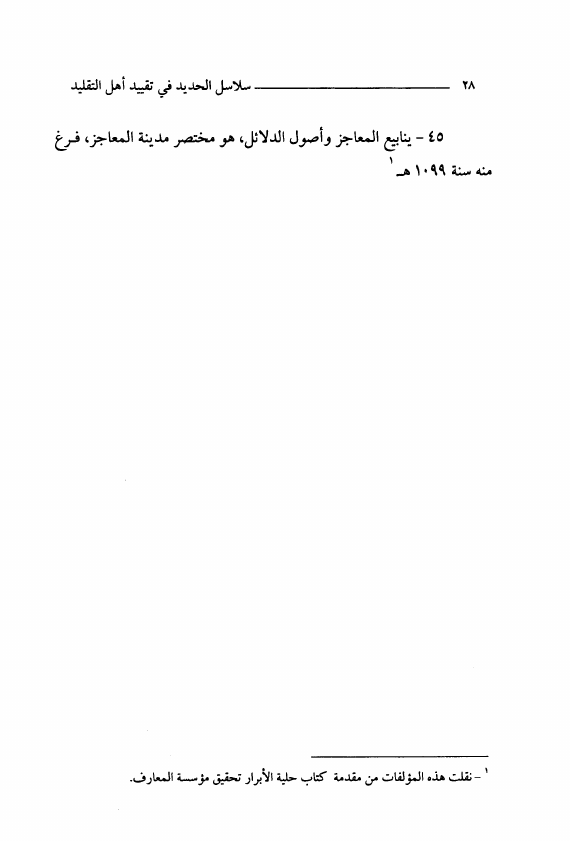 ٢٨ ــــــــــــــــــــــــــــــ سلاسل الحديد في تقييد أهل التقليد
٤٥ - ينابيع المعاجز وأصول الدلائل، هو مختصر مدينة المعاجز، فـرغ
منه سنة ١٠٩٩ هـ ١
١ - نقلت هذه المؤلفات من مقدمة كتاب حلية الأبرار تحقيق مؤسسة المعارف.